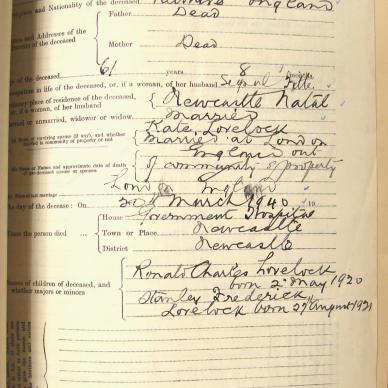 and Nationality of the deceased England
Father Dead
and Addresses of the
of the deceased
Mother Dead
of the deceased 61 years 8 months
in life of the deceased, or, if a woman, of her husband
place of residence of the deceased,
of her husband Newcastle Natal
or unmarried, widower or widow Married
Name of surviving spouse (if any), and whether
married in community of property or not
Kate Lovelock
married at London
England out
of community of property
Names and approximate date of death
of pre-deceased spouse or spouses
of last marriage London England
The day of the decease: On March 1940 19
House Government Hospital
Where the person died Town or Place Newcastle
District Newcastle
Names of children of deceased, and
whether majors or minors
Charles Lovelock
born 2nd May 1920
Stanley Frederick
Lovelock born 27 August 1921